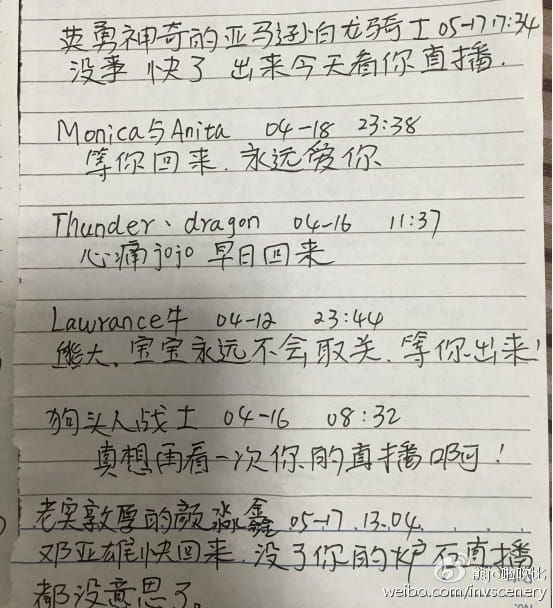 英勇神奇的亚马逊白龙骑士 05-17 17:34
没事 快了 出来今天看你直播.
Monica与Anita 04-18 23:38
等你回来.永远爱你
Thunder、dragon 04-16 11:37
心痛jojo 早日回来
Lawrance牛 04-12 23:44
熊大.宝宝永远不会取关.等你出来!
狗头人战士 04-16 08:32
真想再看一次你的直播啊!
老实敦厚的颜淼鑫 05-17.13.04.
邓亚雄快回来.没了你的炉石直播
都没意思了。
weibo.com/invscenery